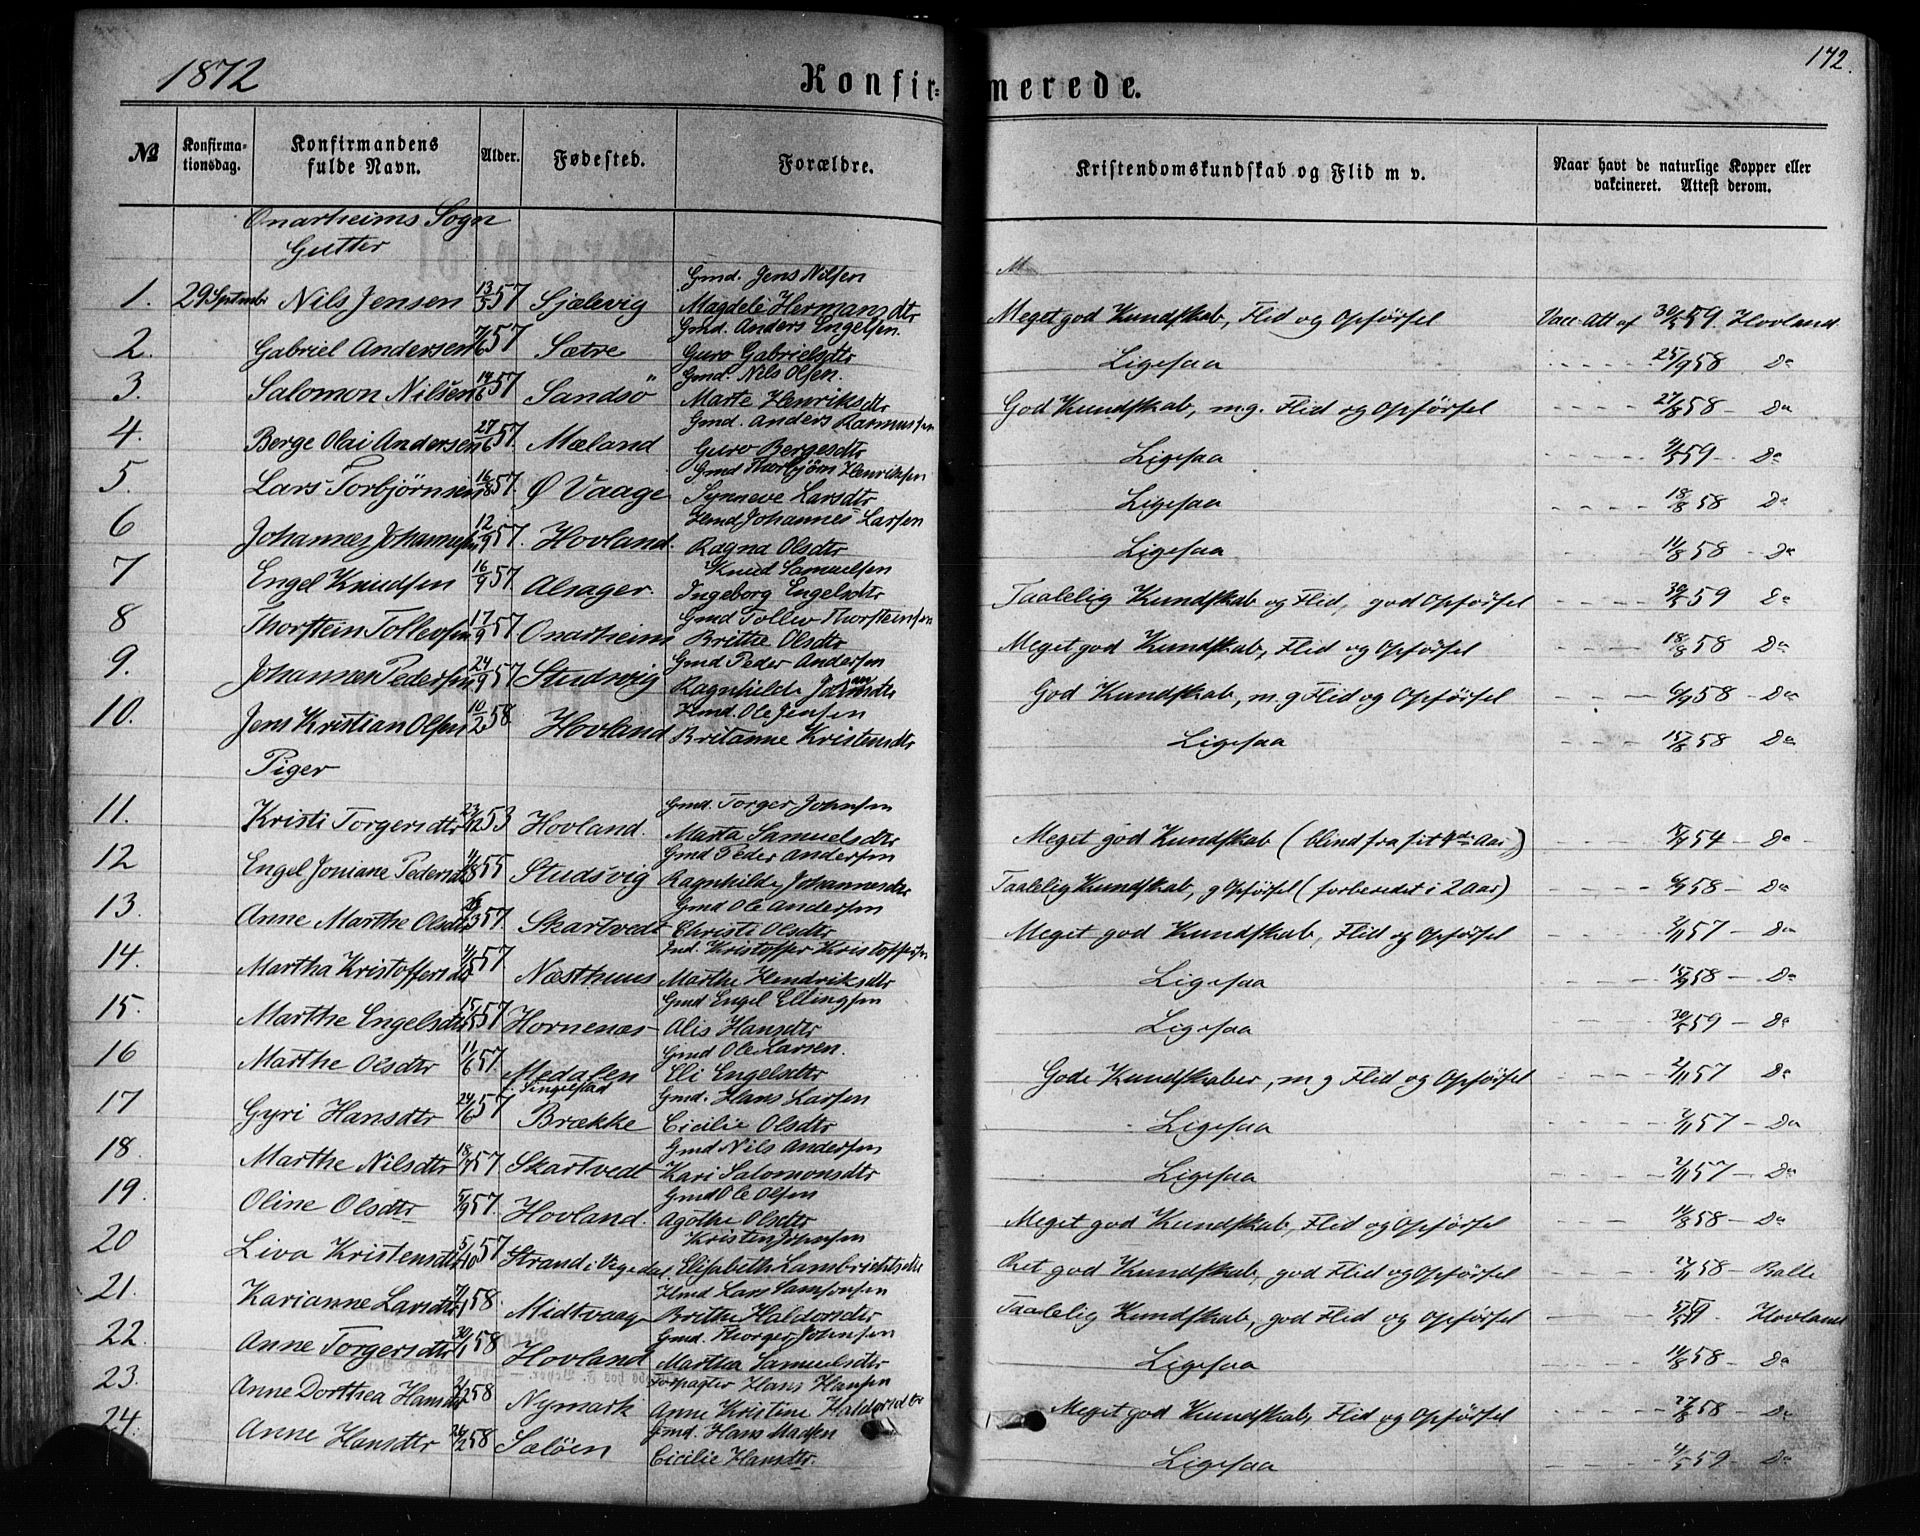 1872
Konfirmerede.
172.
№
Konfirmationsdag.
Konfirmandens fulde Navn.
Alder.
Fødested.
Forældre.
Kristendomskundskab og Flid m v.
Naar havt de naturlige Kopper eller vakcineret. Attest derom.
Onarheims Sogn
Gutter
1. 29 Septembr Nils Jensen 13/5 57 Sjælevig Gmd. Jens Nilsen Magdeli Hermansdtr Meget god Kundskab, Flid og Opførsel Vacc. Att af 30/5 59. Hovland
2. Gabriel Andersen 7/6 57 Sætre Gmd. Anders Engelsen. Guro Gabrielsdtr Ligesaa 25/9 58 Do
3. Salomon Nilsen 14/6 57 Sandsö Gmd. Nils Olsen. Marte Henriksdtr God Kundskab, m.g. Flid og Opførsel 27/8 58 - Do
4. Berge Olai Andersen 27/6 57. Mæland Gmd. Anders Rasmussen Guro Bergesdtr Ligesaa 59 - Do
5. Lars Torbjörnsen 16/8 57. Ø Vaage Gmd Thorbjörn Henriksen Synneve Larsdtr Ligesaa 18/8 58 Do
6 Johannes Johannesen 12/9 57. Hovland. Hmd Johannes Larsen Ragna Olsdtr Ligesaa 11/8 58 - Do
7 Engel Knudsen 16/9 57. Alsager. Knud Samuelsen Ingeborg Engelsdtr Taalelig Kundskab og Flid, god Opförsel 30/5 59 Do
8 Thorstein Tollevsen 17/9 57 Onarheim Gmd Tollev Thorsteinsen Britha Olsdtr Meget god Kundskab, Flid og Opförsel 18/8 58 Do
9. Johannes Pedersen 24/9 57 Studsvig Gmd Peder Andersen Ragnhilde Johannsdtr God Kundskab, m.g Flid og Opførsel 6/9 58 - Do
10. Jens Kristian Olsen 10/2 58. Hovland Hmd. Ole Jensen Britanne Kristensdtr Ligesaa 15/8 58 Do
Piger
11. Kristi Torgersdtr 23/12 53 Hovland. Gmd. Torger Johnsen Marta Samuelsdtr Meget god Kundskab (blind fra sit 4de Aar) 54 - Do
12 Engel Joniane Pedersd 4/8 55 Studsvig Gmd Peder Andersen Ragnhilde Johannesdtr Taalelig Kundskab, g Opførsel (forberedet i 2 Aar) 6/9 58 - Do
13. Anne Marthe Olsdtr 57 Skartvedt Gmd Ole Andersen Christi Olsdtr Meget god Kundskab, Flid og Opførsel 2/11 57 - Do
14. Martha Kristoffersd 57 Næsthuus Ind. Kristoffer Kristoffersen Marthe Hendriksdtr Ligesaa 15/9 58 - Do
15. Marthe Engelsdtr 15/5 57 Hornenæs Gmd Engel Ellingsen Alis Hansdtr Ligesaa 30/5 59 - Do
16 Marthe Olsdtr 11/6 57. Medalen Gmd Ole Larsen. Eli Engelsdtr Gode Kundskaber, m g Flid og Opførsel 2/11 57 - Do
17 Gyri Hansdtr 24/6 57 Brække Gmd. Hans Larsen Cicilie Olsdtr Ligesaa 2/11 57 - Do
18. Marthe Nilsdtr 18/7 57. Skartvedt Gmd Nils Andersen Kari Salomonsdtr Ligesaa 2/11 57 - Do
19. Oline Olsdtr 5/9 57. Hovland. Gmd Ole Olsen Agothe Olsdtr Meget god Kundskab, Flid og Opførsel 11/8 58 - Do
20 Liva Kristensdtr 5/10 57 Strand i Kristen Johnsen Elisabeth Lambrichtsdtr Ret god Kundskab, god Flid og Opførsel 58 - Balle
21. Karianne Larsdtr 7/1 58. Midtvaage Hmd Lars Samsonsen Britha Haldorsdtr Taalelig Kundskab, god Flid og Opførsel 59. Hovland
22. Anne Torgersdtr 30/1 58 Hovland Gmd. Thorger Johnsen Martha Samuelsdtr Ligesaa 11/8 58 - Do
23. Anne Dorthea Hansdtr 2/2 58 Nymark Forpagter Hans Hansen Anne Kristine Haldorsdtr Meget god Kundskab, Flid og Opförsel 27/8 58 - Do
24. Anne Hansdtr 26/2 58 Salöen Gmd. Hans Madsen Cicilie Hansdtr. Ligesaa 4/5 59 - Do